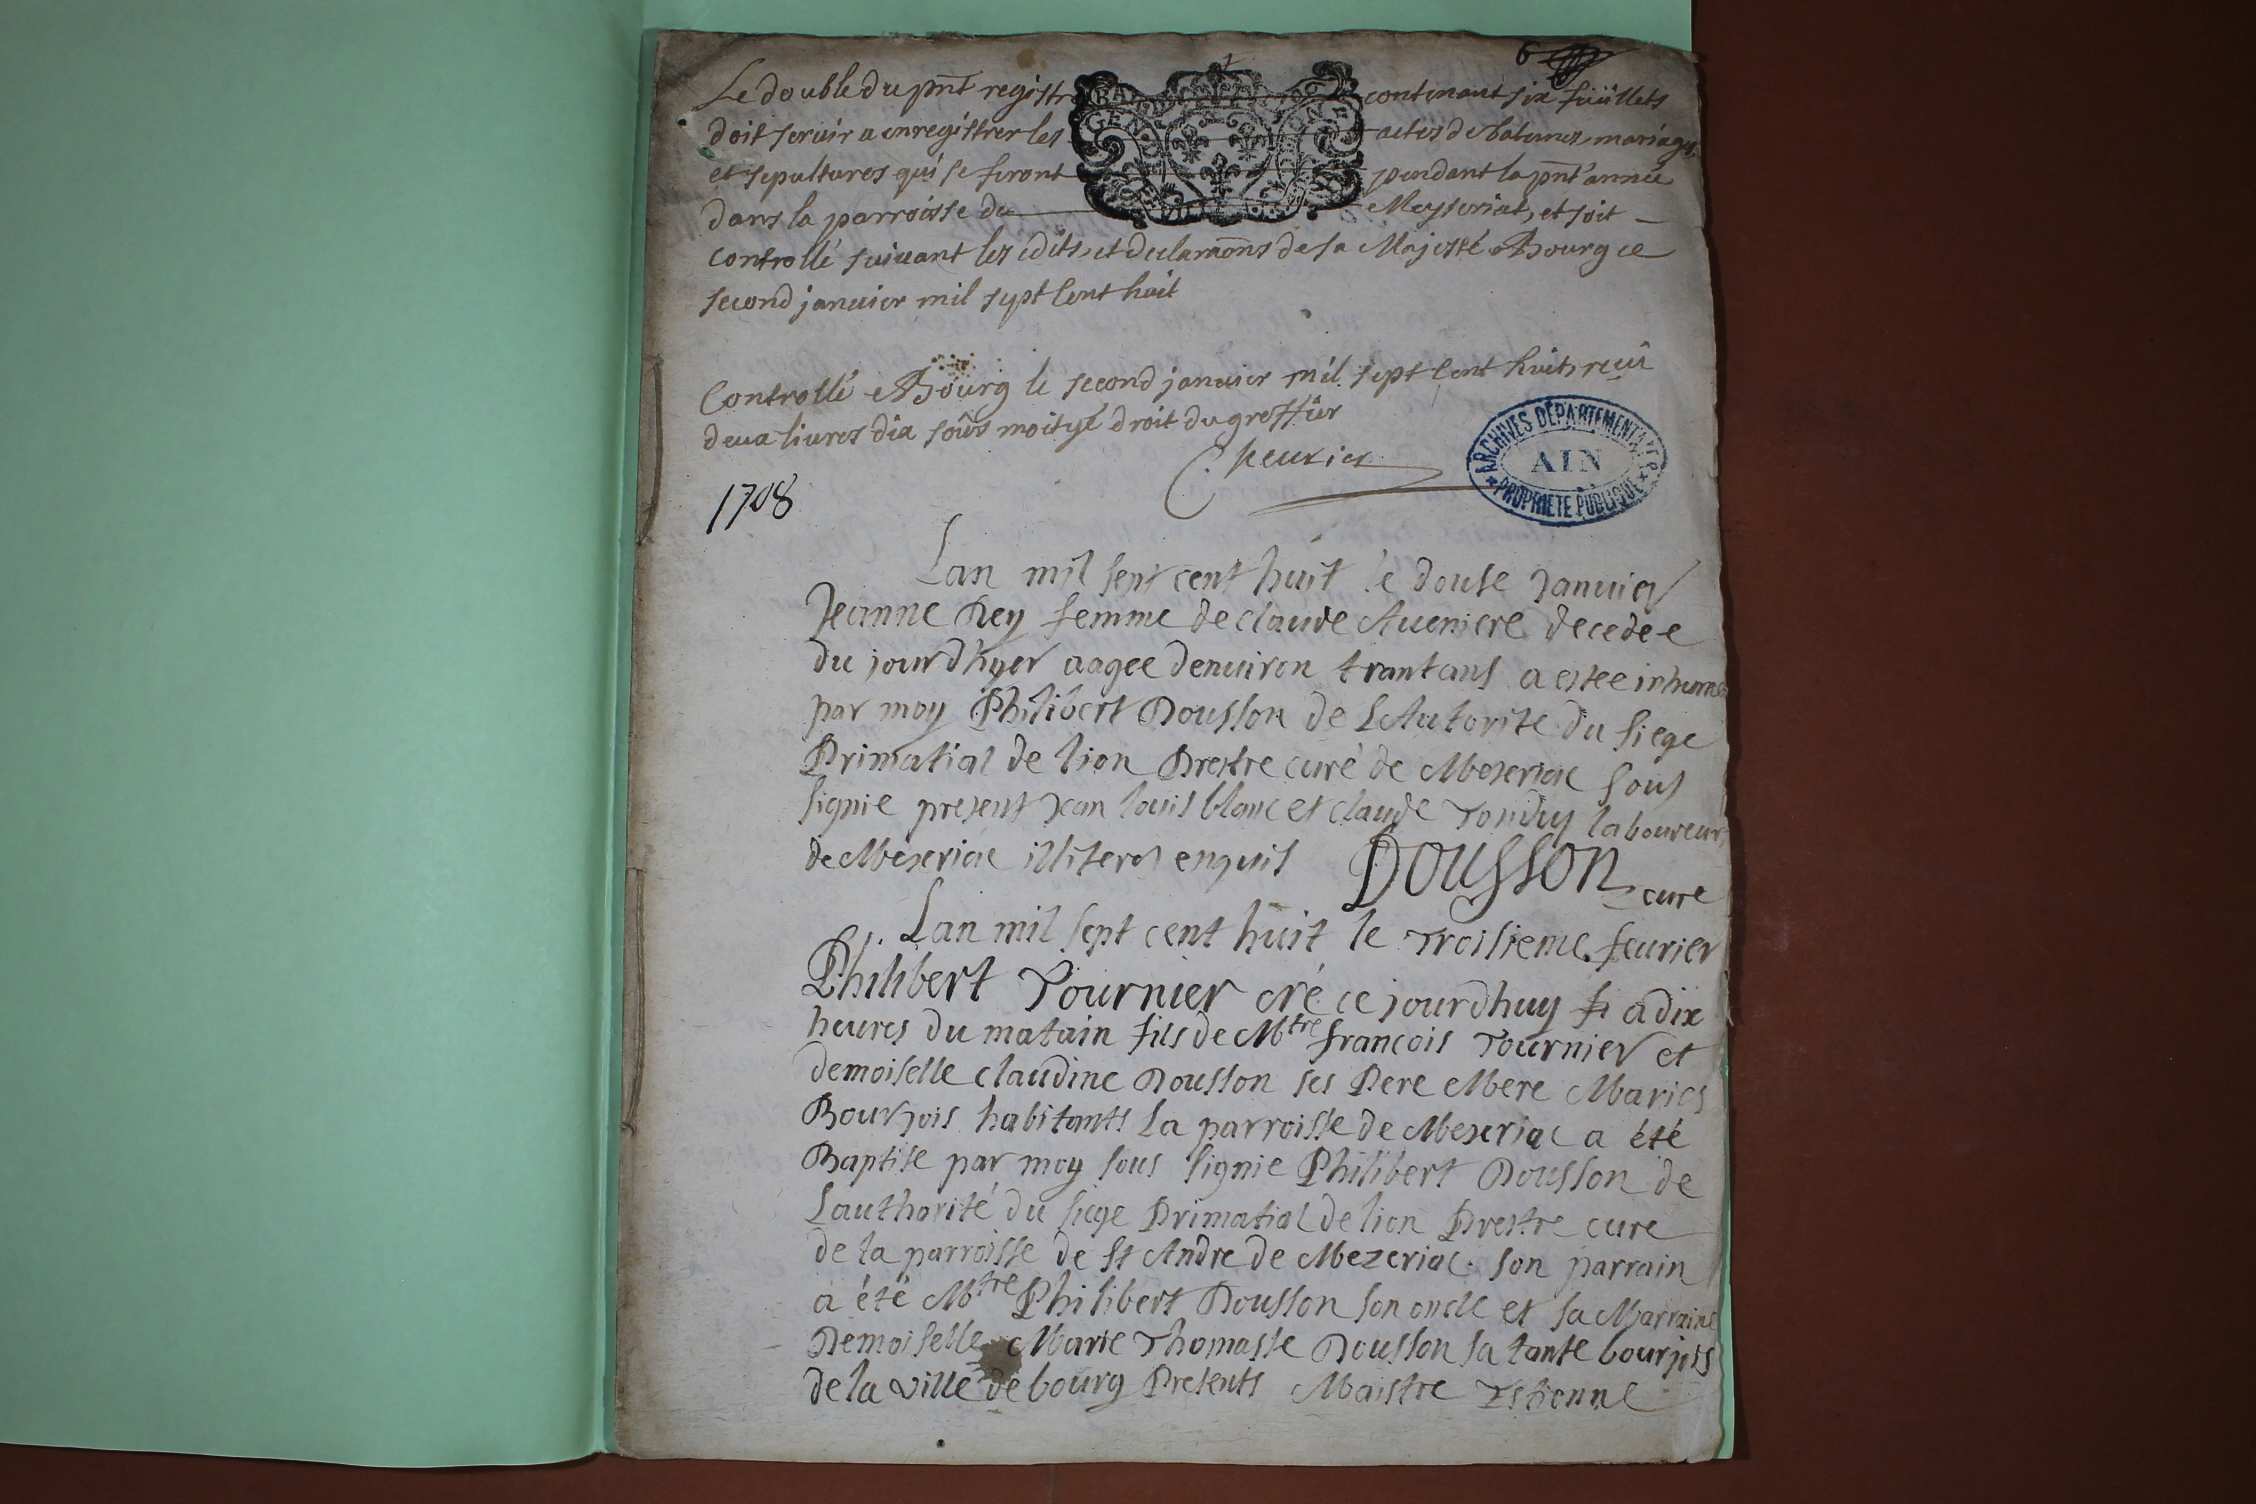 6
Le double du pnt registre contenant six füillets
doit seruir a enregistrer les actes de batemes, mariages,
et sepultures qui se feront pendant la pnt'année
dans la parroisse de Meyseriat, et soit
controllé suiuant les édits, et declaraons de sa Majesté A Bourg ce
second januier mil sept Cent huit
Controllé A Bourg le second januier mil sept Cent huit, receu
deux liures dix sous moityé droit du greffier
Cheurier
ARCHIVES DÉPARTEMENTALES
AIN
PROPRIÉTÉ PUBLIQUE
1708
Lan mil sept cent huit le douse Januier
Jeanne Rey femme de claude Aueniere decedée
du jourdhyer aagee denuiron trantans a estee inhumé
par moy Philibert Dousson de LAutorite du siege
Primatial de lion Prestre curé de Meseriac sous
signie present Jean louis blanc et claude Tondu laboureurs
de Meseriac illiteres enquis Dousson cure
Lan mil sept cent huit le Troisieme feurier
Philibert Tournier né ce jourdhuy a dix
heures du matain fils de Mtre françois Tournier et
demoiselle claudine Dousson ses Pere Mere Maries
Bourjois habitants La parroisse de Meseriac a été
Baptise par moy sous signie Philibert Dousson de
Lauthorité du siege Primatial de lion Prestre cure
de la parroisse de St Andre de Mezeriac. son parrain
a été Mtre Philibert Dousson son oncle et sa Marraine
Demoiselle Marie Thomasse Dousson sa tante bourjois
de la ville de bourg Presents Maistre Estienne